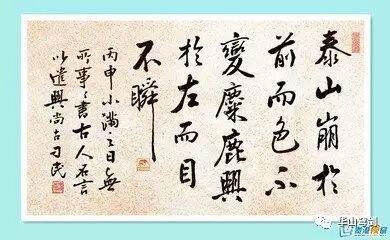 泰山崩於
前而色不
變麋鹿興
於左而目
不瞬
丙申小滿之日無
所事〻書古人名言
以遣興尚古刁民